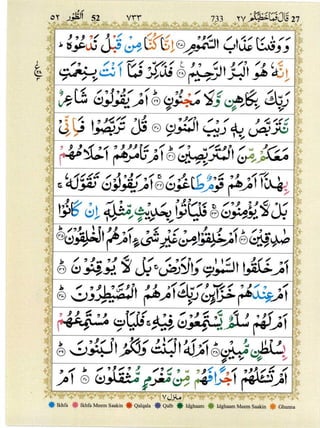 ٥٢ اَلطُّوۡر 52 ٧٣٣ 733 ٢٧ قَالَ فَمَا خَطۡبُكُمۡ 27
وَوَقٰىنَا عَذَابَ السَّمُوۡمِ ۝۲۷ اِنَّا كُنَّا مِنۡ قَبۡلُ نَدۡعُوۡهُ ؕ
اِنَّهٗ هُوَ الۡبَرُّ الرَّحِيۡمُ ۝۲۸ فَذَكِّرۡ فَمَاۤ اَنۡتَ بِنِعۡمَتِ
رَبِّكَ بِكَاهِنٍ وَّلَا مَجۡنُوۡنٍ ؕ۝۲۹ اَمۡ يَقُوۡلُوۡنَ شَاعِرٌ
نَّتَرَبَّصُ بِهٖ رَيۡبَ الۡمَنُوۡنِ ۝۳۰ قُلۡ تَرَبَّصُوۡا فَاِنِّىۡ
مَعَكُمۡ مِّنَ الۡمُتَرَبِّصِيۡنَ ؕ۝۳۱ اَمۡ تَاۡمُرُهُمۡ اَحۡلَامُهُمۡ
بِهٰذَاۤ اَمۡ هُمۡ قَوۡمٌ طَاغُوۡنَ ۝۳۲ اَمۡ يَقُوۡلُوۡنَ تَقَوَّلَهٗ ۚ
بَلۡ لَّا يُؤۡمِنُوۡنَ ۝۳۳ فَلۡيَاۡتُوۡا بِحَدِيۡثٍ مِّثۡلِهٖۤ اِنۡ كَانُوۡا
صٰدِقِيۡنَ ؕ۝۳۴ اَمۡ خُلِقُوۡا مِنۡ غَيۡرِ شَىۡءٍ اَمۡ هُمُ الۡخٰلِقُوۡنَ ؕ۝۳۵
اَمۡ خَلَقُوا السَّمٰوٰتِ وَالۡاَرۡضَ ۚ بَلۡ لَّا يُوۡقِنُوۡنَ ؕ۝۳۶
اَمۡ عِنۡدَهُمۡ خَزَآئِنُ رَبِّكَ اَمۡ هُمُ الۡمُصَۜيۡطِرُوۡنَ ؕ۝۳۷
اَمۡ لَهُمۡ سُلَّمٌ يَّسۡتَمِعُوۡنَ فِيۡهِ ۚ فَلۡيَاۡتِ مُسۡتَمِعُهُمۡ
بِسُلۡطٰنٍ مُّبِيۡنٍ ؕ۝۳۸ اَمۡ لَهُ الۡبَنٰتُ وَلَكُمُ الۡبَنُوۡنَ ؕ۝۳۹
اَمۡ تَسۡئَلُهُمۡ اَجۡرًا فَهُمۡ مِّنۡ مَّغۡرَمٍ مُّثۡقَلُوۡنَ ؕ۝۴۰ اَمۡ
منزل ٧
Ikhfa Ikhfa Meem Saakin Qalqala Qalb Idghaam Idghaam Meem Saakin Ghunna